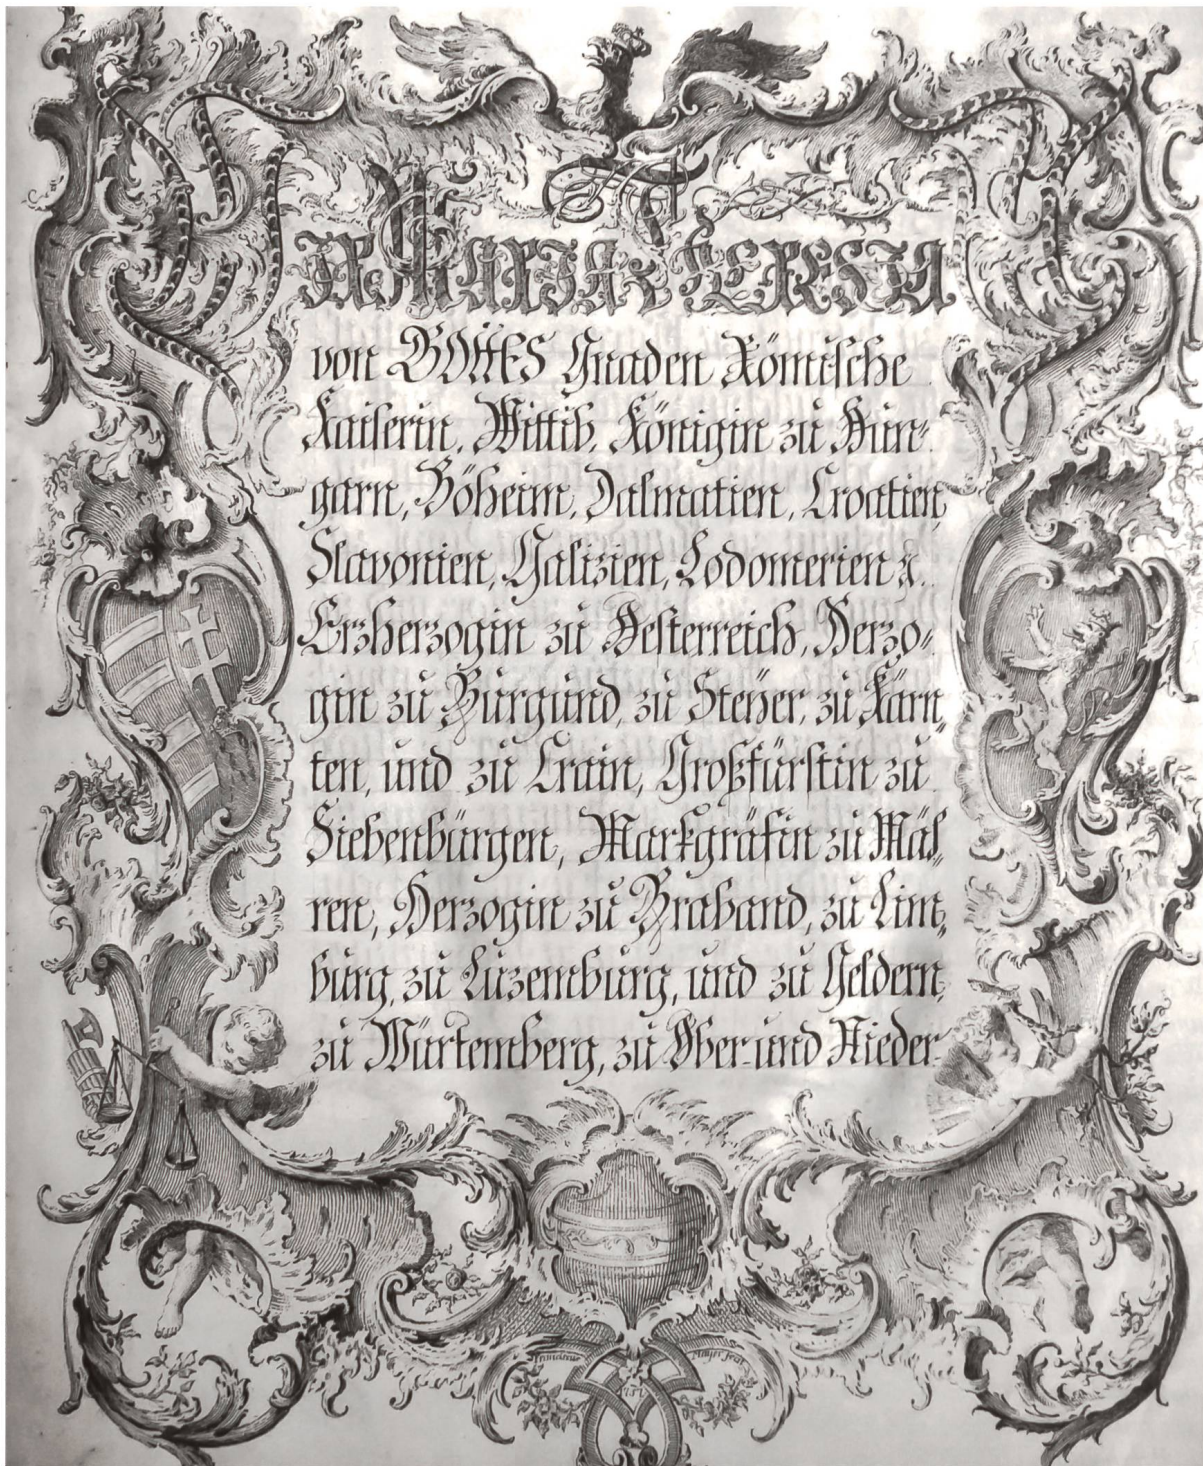 WIR MARIA THERESIA
von GOTTES Gnaden Römische
Kaiserin, Wittib, Königin zu Hun=
garn, Böheim, Dalmatien, Croatien,
Slavonien, Galizien, Lodomerien ꝛc.
Erzherzogin zu Oesterreich, Herzo=
gin zu Burgund, zu Steÿer, zu Kärn„
ten, und zu Crain, Großfürstin zu
Siebenbürgen, Markgräfin zu Mäh„
ren, Herzogin zu Braband, zu Lim„
burg, zu Luzemburg, und zu Geldern,
zu Würtemberg, zu Ober- und Nieder-